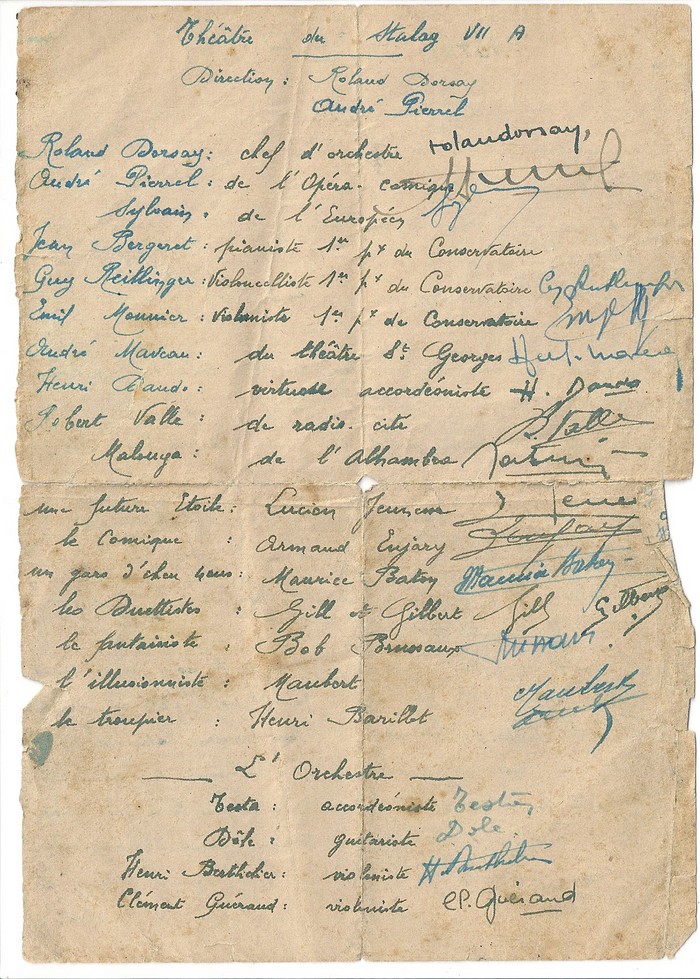 Théâtre du Stalag VII A
Direction : Roland Dorsay
André Pierrel
Roland Dorsay : chef d'orchestre rolandorsay,
André Pierrel : de l'Opéra-comique
Sylvain . de l'Européen
Jean Bergeret : pianiste 1er px du Conservatoire
Guy Reitlinger : Violoncelliste 1er px du Conservatoire
Emil Monnier : violoniste 1er px de Conservatoire
André Maveau : du théâtre St. Georges
Henri Daudo : virtuose accordéoniste H. Daudo
Robert Valle : de radio-cité R Valle
Malouga : de l'Alhambra
une future Etoile : Lucien Jeunesse
le Comique : Armand Enjary
un gars d'chez nous : Maurice Baton Maurice Baton
les Duettistes : Gill et Gilbert Gill Gilbert
le fantaisiste : Bob Brussaux
l'illusionniste : Maubert Maubert
le troupier : Henri Barillot
L'Orchestre
Testa : accordéoniste
Dôle : guitariste Dole
Henri Berthelier : violoniste H. Berthelier
Clément Guéraud : violoniste Cl. Guéraud